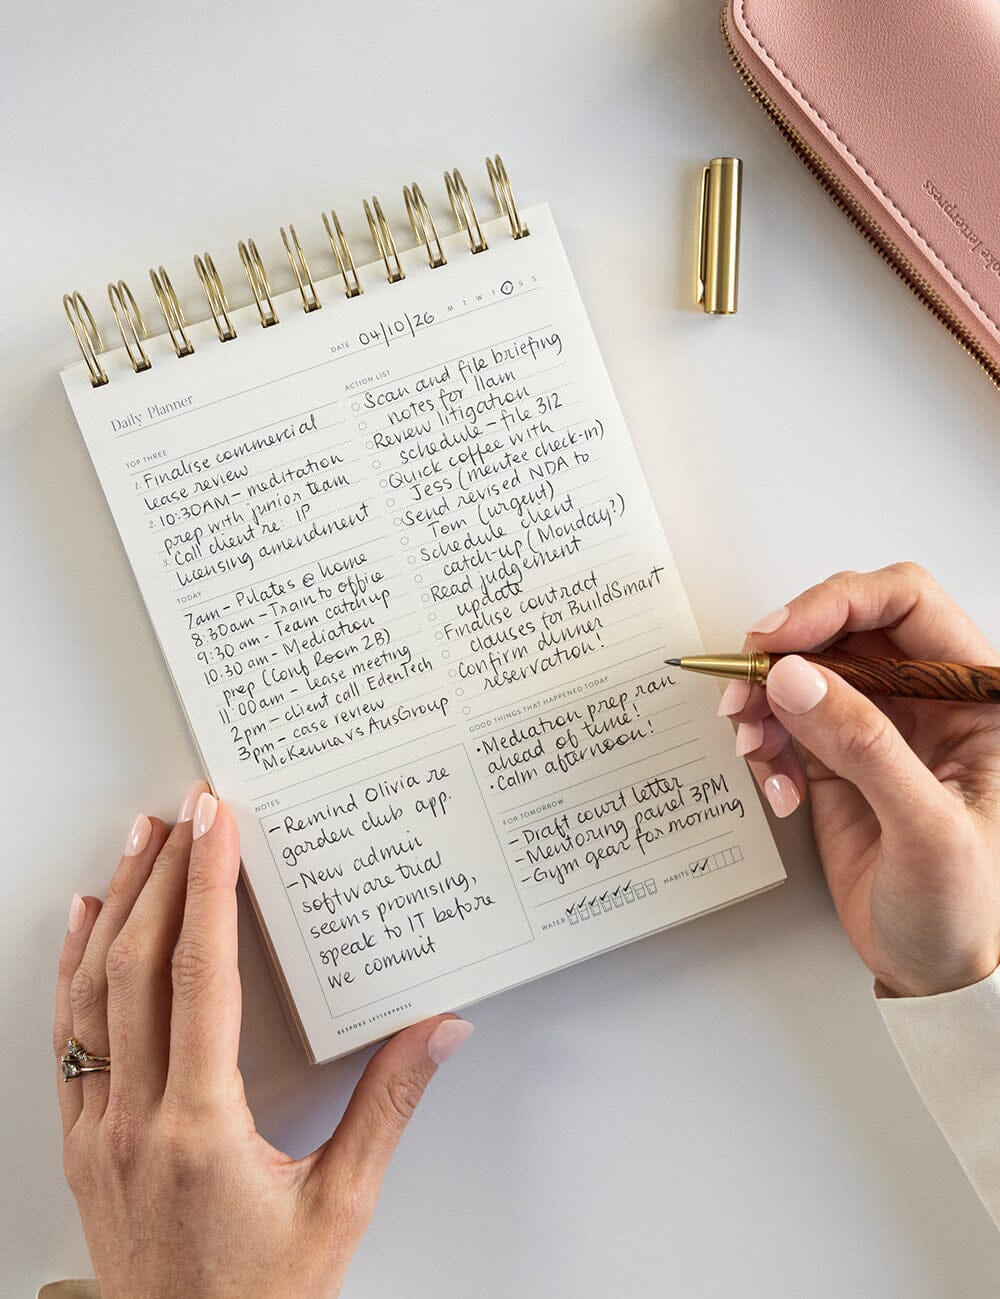 DATE 04/10/26 M T W T F S S
Daily Planner
TOP THREE
1. Finalise commercial
lease review
2. 10:30AM – meditation
prep with junior team
3. Call client re: IP
licensing amendment
TODAY
7am – Pilates @ home
8:30am – Train to office
9:30 am – Team catchup
10:30 am – Mediation
prep (Conf Room 2B)
11:00am – lease meeting
2pm – client call EdenTech
3pm – case review
McKenna vs AusGroup
ACTION LIST
Scan and file briefing
notes for 11am
Review litigation
schedule – file 312
Quick coffee with
Jess (mentee check-in)
Send revised NDA to
Tom (urgent)
Schedule client
catch-up (Monday?)
Read judgement
update
Finalise contract
clauses for BuildSmart
Confirm dinner
reservation!
GOOD THINGS THAT HAPPENED TODAY
• Mediation prep ran
ahead of time!
• Calm afternoon!
NOTES
– Remind Olivia re
garden club app.
– New admin
software trial
seems promising,
speak to IT before
we commit
FOR TOMORROW
– Draft court letter
– Mentoring panel 3PM
– Gym gear for morning
WATER
HABITS
BESPOKE LETTERPRESS
oke letterpress